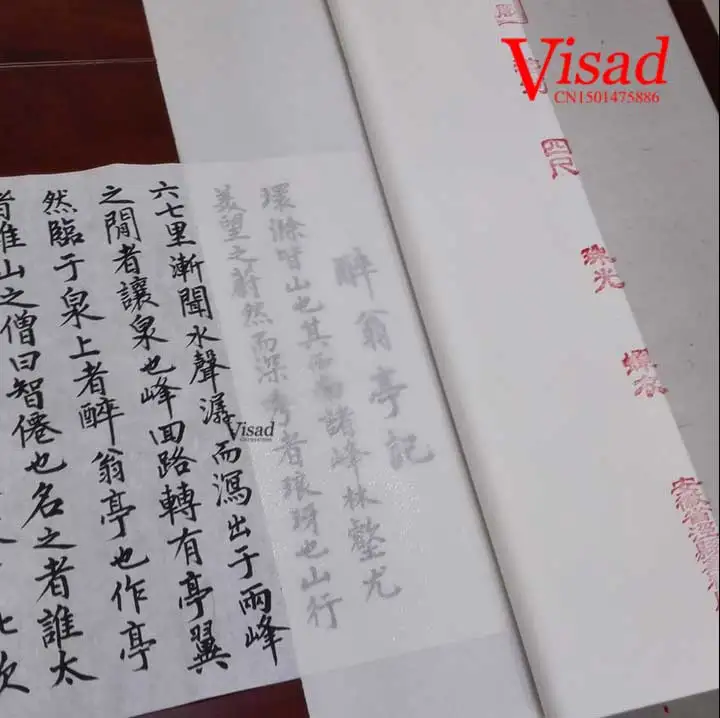 Visad
CN1501475886
四尺
珠光
蟬衣
安徽省涇縣
醉翁亭記
環滁皆山也其西南諸峰林壑尤
美望之蔚然而深秀者琅玡也山行
六七里漸聞水聲潺而瀉出于兩峰
之間者讓泉也峰回路轉有亭翼
然臨于泉上者醉翁亭也作亭
者誰山之僧曰智僊也名之者誰太
Visad